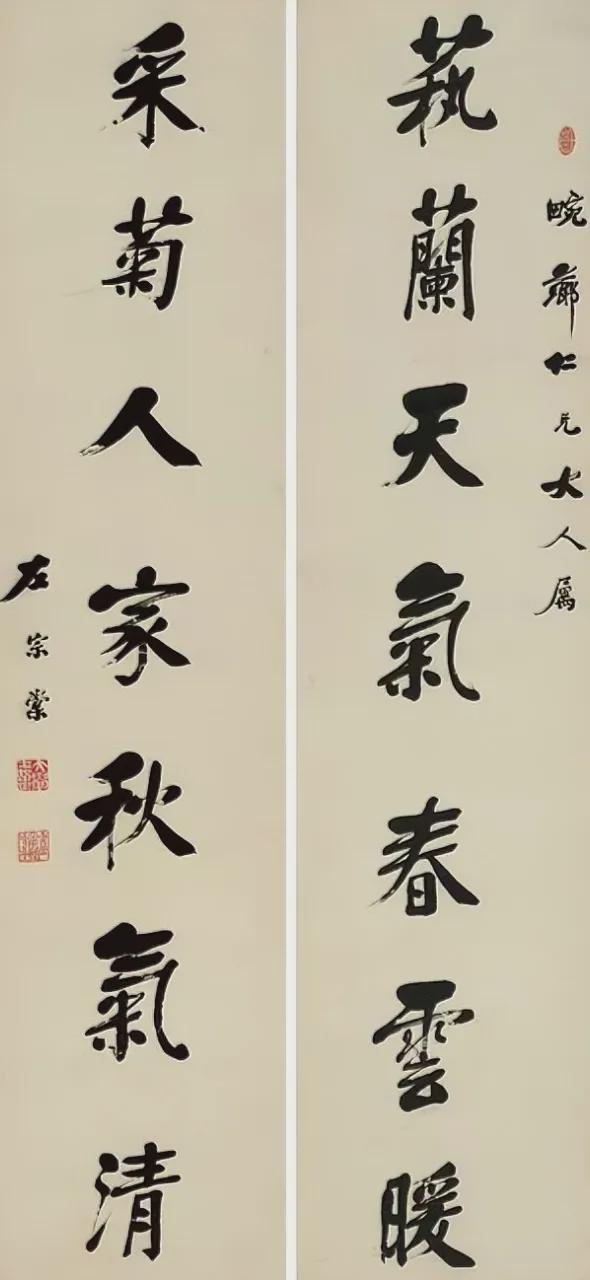 畹薌仁兄大人属
蓺蘭天氣春雲暖
采菊人家秋氣清
左宗棠